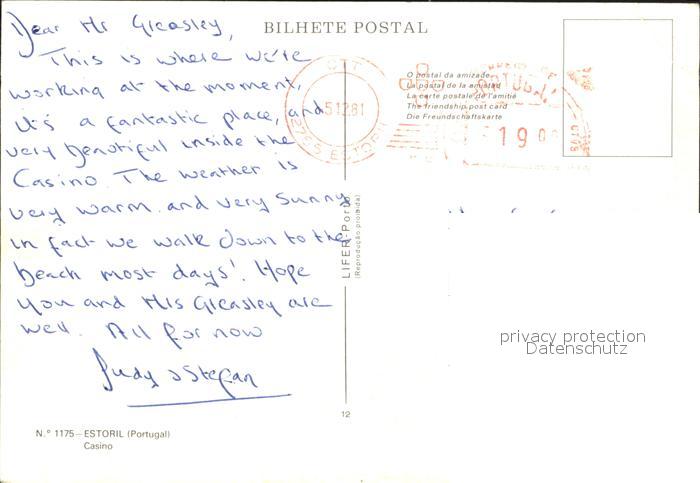 BILHETE POSTAL
Dear Mr Greasley,
This is where we're
working at the moment,
it's a fantastic place, and
very beautiful inside the
Casino. The weather is
very warm and very sunny
in fact we walk down to the
beach most days! Hope
you and Mrs Greasley are
well. All for now
Judy & Stefan
Nº 1175 - ESTORIL (Portugal)
Casino
CTT
5.12.81
2765 ESTORIL
O postal da amizade
La postal de la amistad
La carte postale de l'amitié
The friendship post card
Die Freundschaftskarte
PORTUGAL
19
LIFER-Porto
(Reprodução proibida)
12
privacy protection
Datenschutz